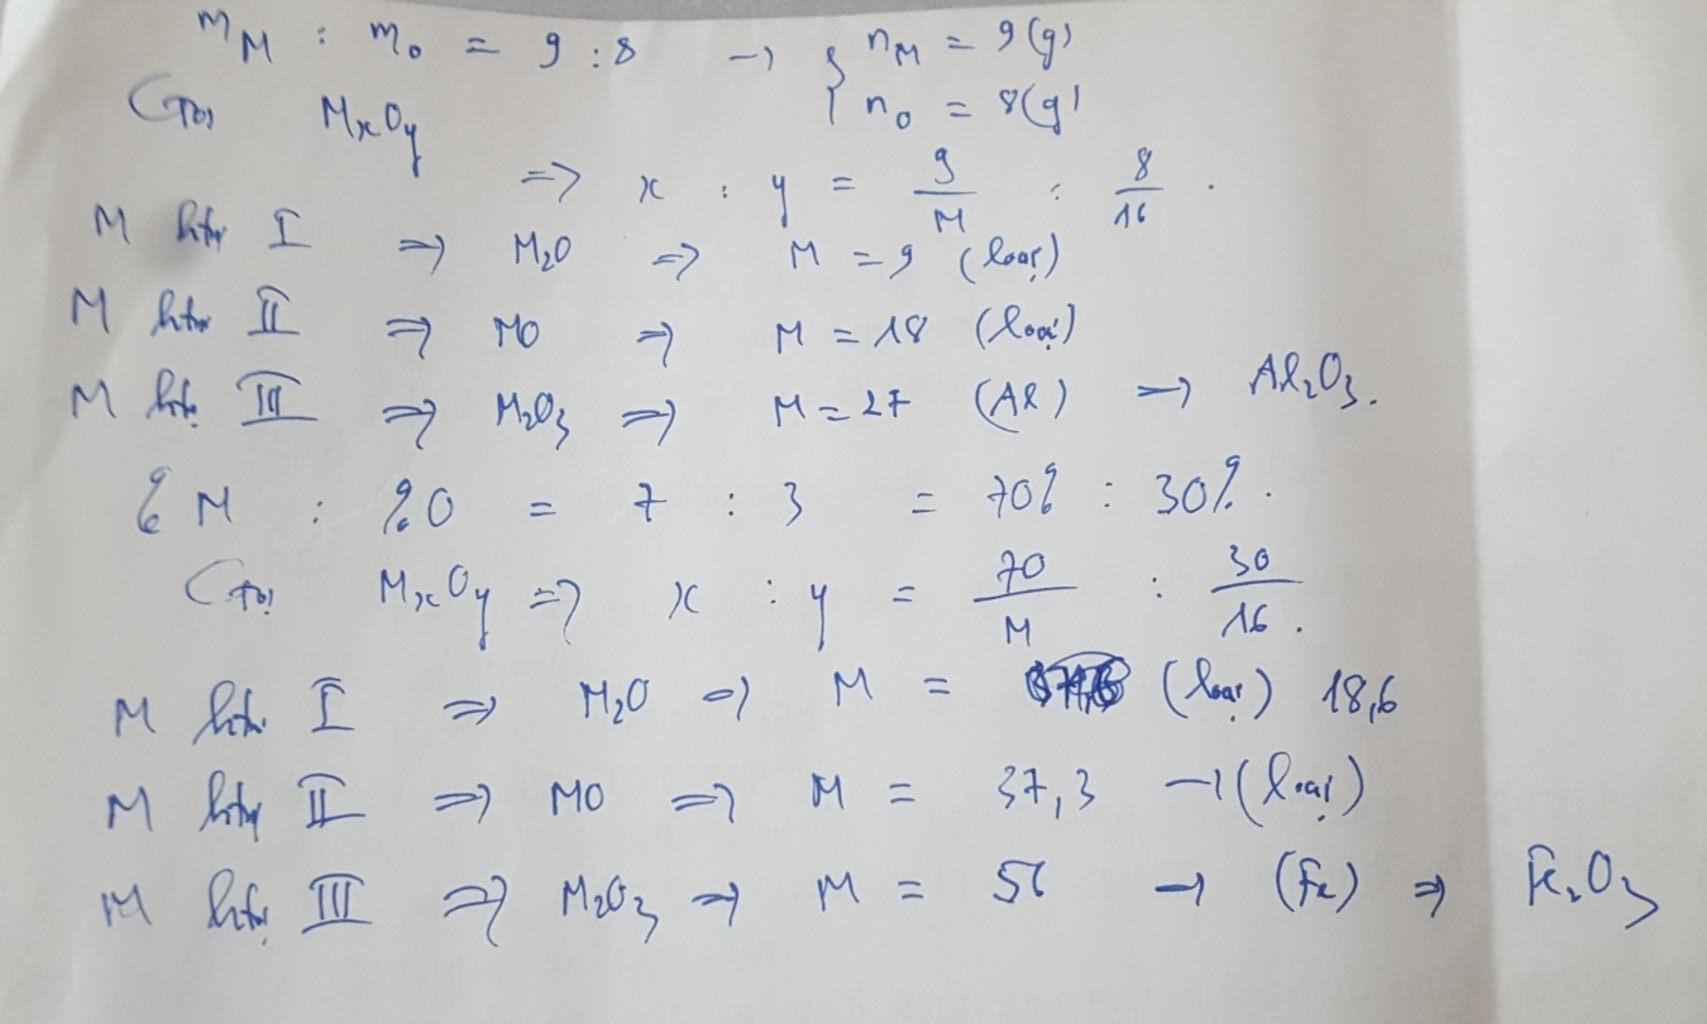 mM : mO = 9 : 8 → { nM = 9(g)
nO = 8(g)
MxOy
=> x : y = 9/M : 8/16 .
M htrị I => M2O => M = 9 (loại)
M htrị II => MO => M = 18 (loại)
M htrị III => M2O3 => M = 27 (Al) → Al2O3.
% M : % O = 7 : 3 = 70% : 30% .
MxOy => x : y = 70/M : 30/16 .
M htrị I => M2O => M = (loại) 18,6
M htrị II => MO => M = 37,3 → (loại)
M htrị III => M2O3 => M = 56 → (Fe) => Fe2O3